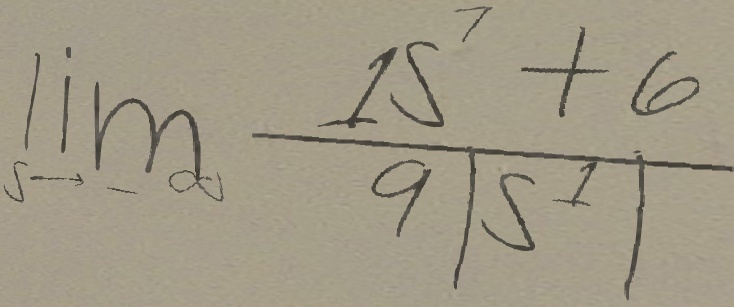 \lim_{s \to -\infty} \frac{1s^7 + 6}{9|s^1|}